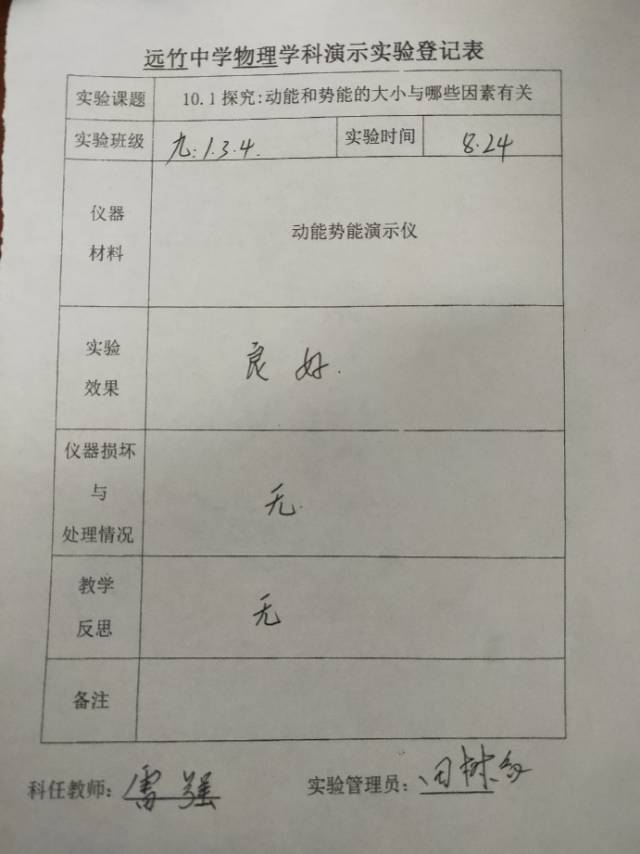 远竹中学物理学科演示实验登记表
实验课题 10.1探究:动能和势能的大小与哪些因素有关
实验班级 九.1.3.4. 实验时间 8.24
仪器
材料
动能势能演示仪
实验
效果
良好.
仪器损坏
与
处理情况
无.
教学
反思
无
备注
科任教师: 雷强 实验管理员: 田树